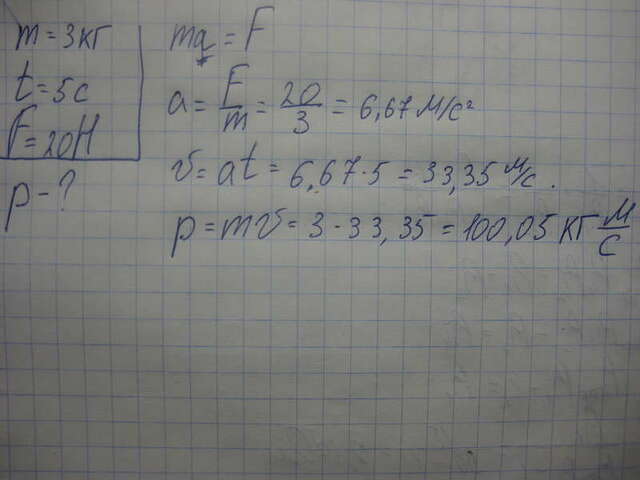 m = 3 кг
t = 5 с
F = 20 Н
p - ?
ma = F
a = F/m = 20/3 = 6,67 м/с²
v = at = 6,67·5 = 33,35 м/с.
p = mv = 3·33,35 = 100,05 кг м/с